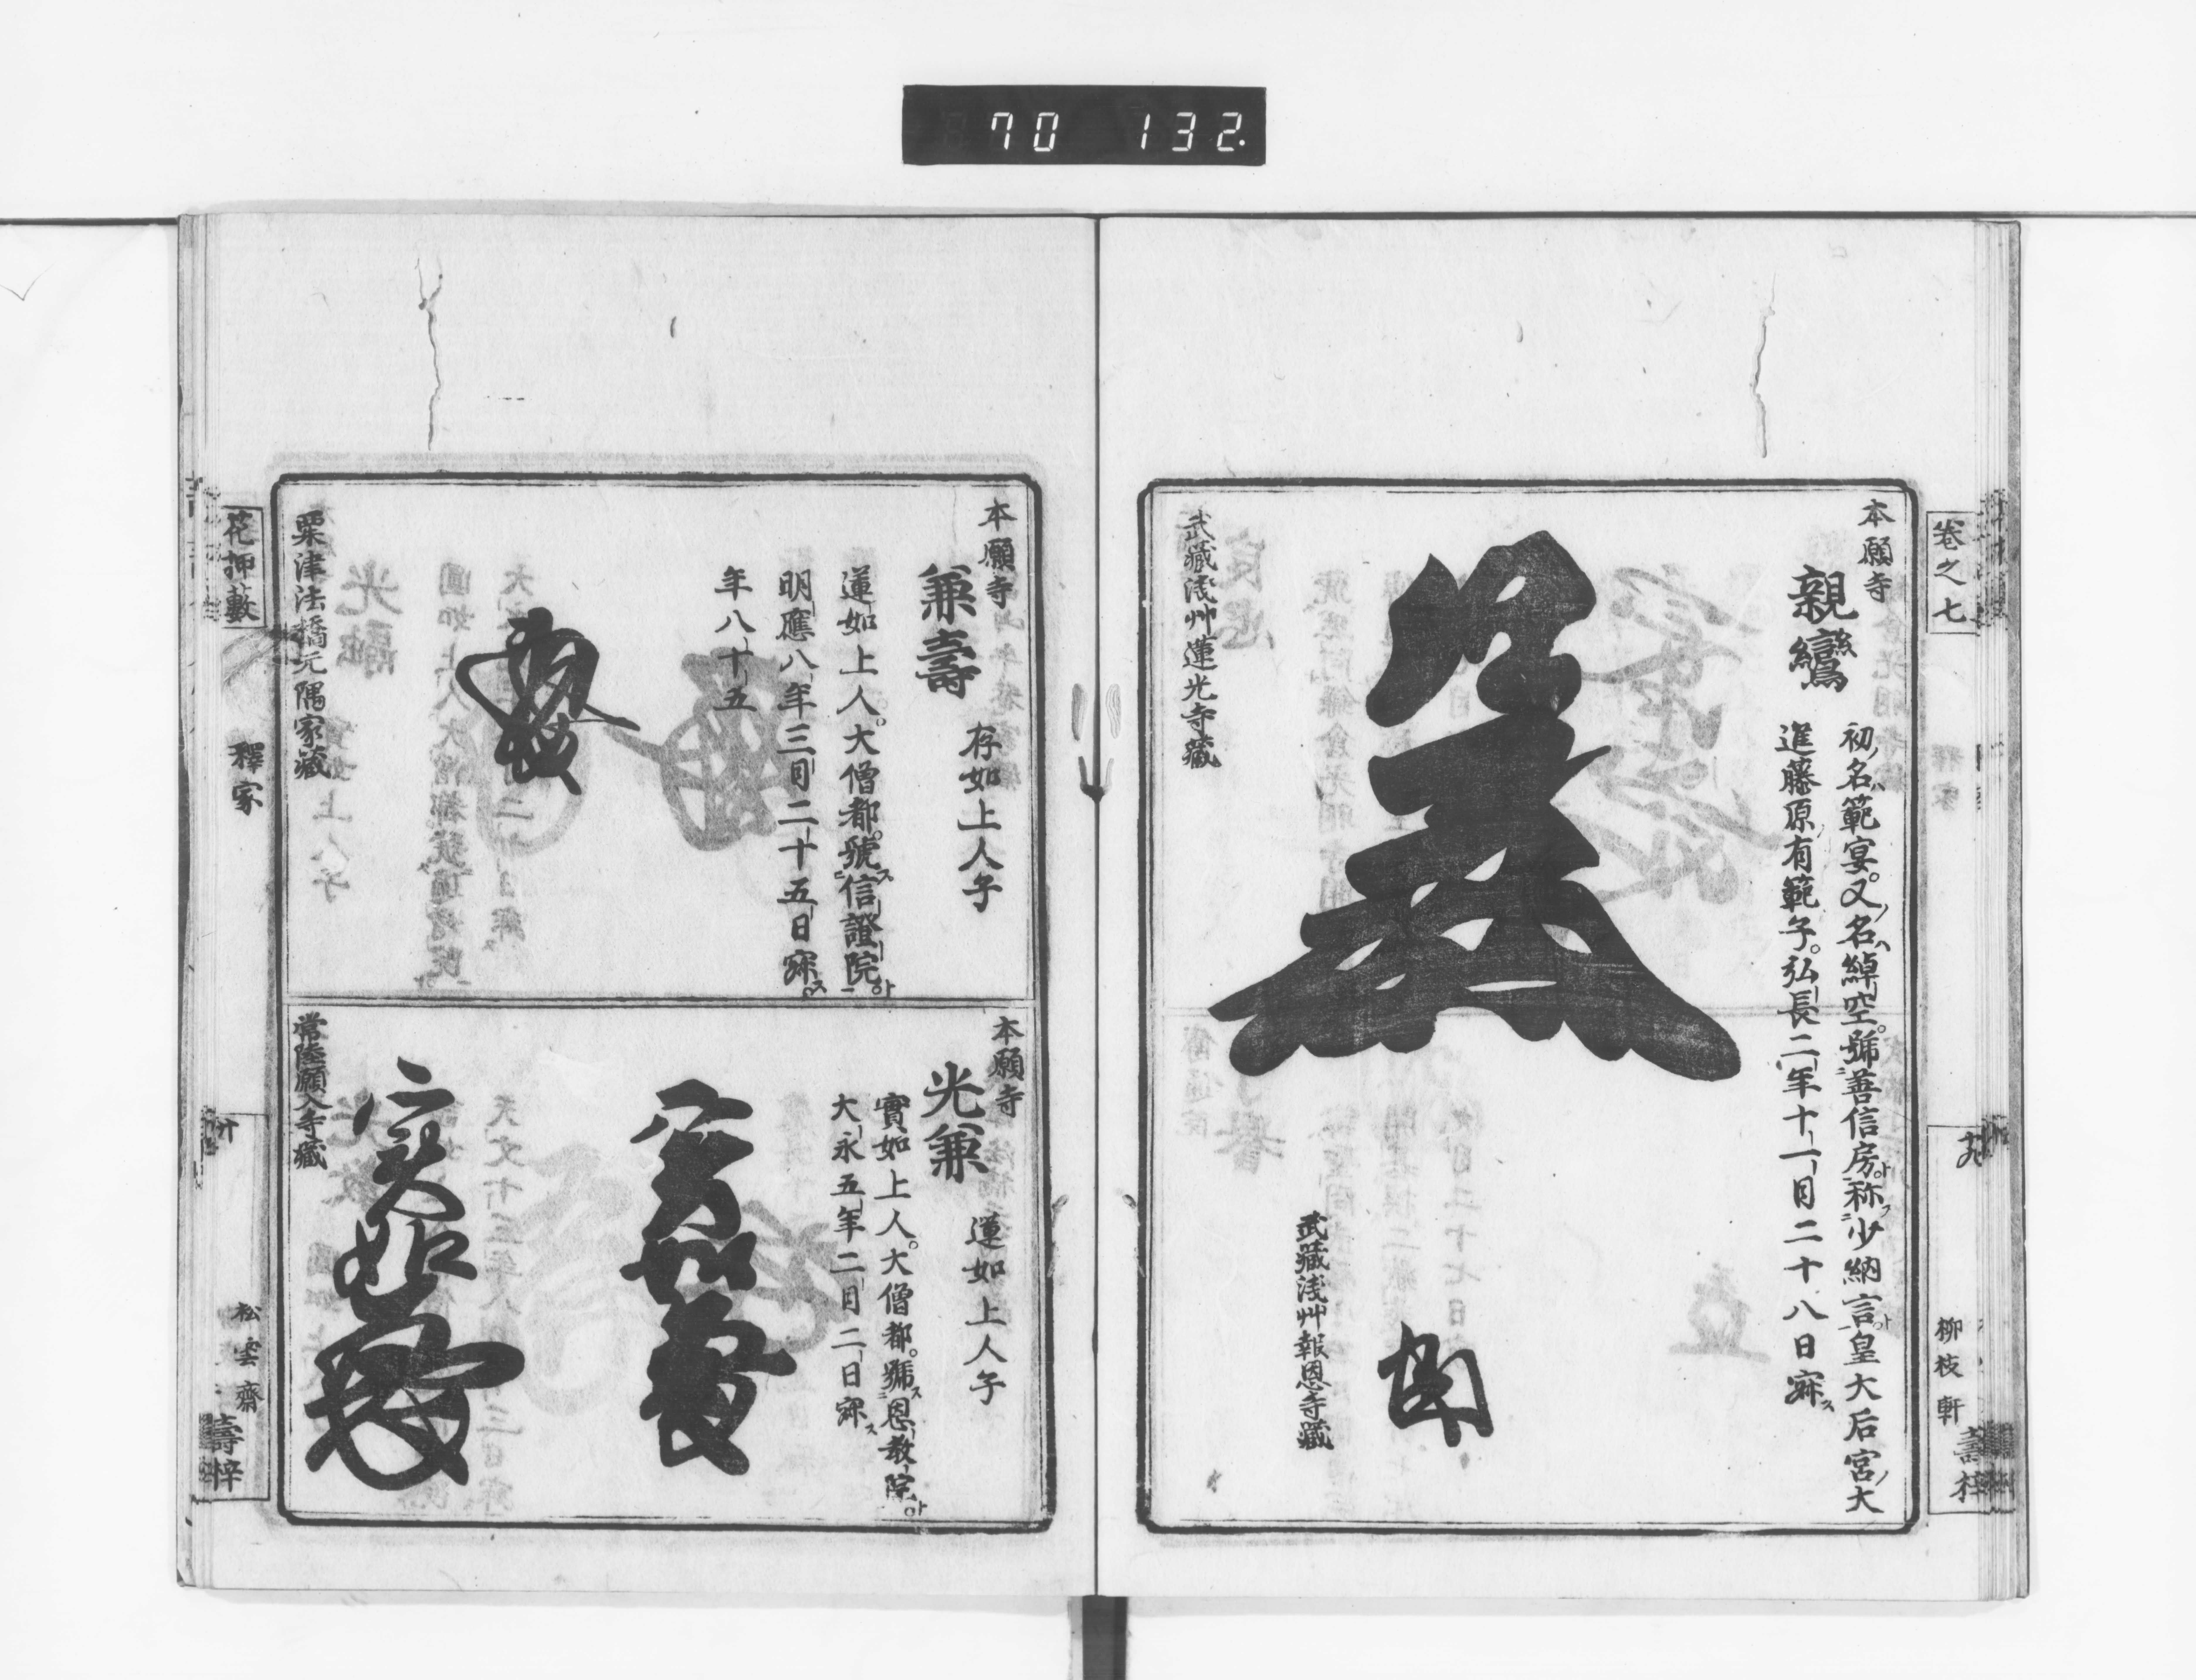 70 132.
卷之七
柳枝軒
本願寺
親鸞
初ノ名ハ範宴。又ノ名ハ綽空。號善信房ト。称ス少納言ト。皇大后宮ノ大
進藤原ノ有範子。弘長二年十一月二十八日寂ス
武藏淺艸報恩寺藏
武藏淺艸蓮光寺藏
本願寺
兼壽
存如上人子
蓮如上人。大僧都。號ス信證院ト
明應八年三月二十五日寂ス。
年八十五
栗津法橋元隅家藏
本願寺
光兼
蓮如上人子
實如上人。大僧都。號ス恩教院ト
大永五年二月二日寂ス
實如
實如
常陸願入寺藏
花押藪
釋家
松雲齋
壽梓